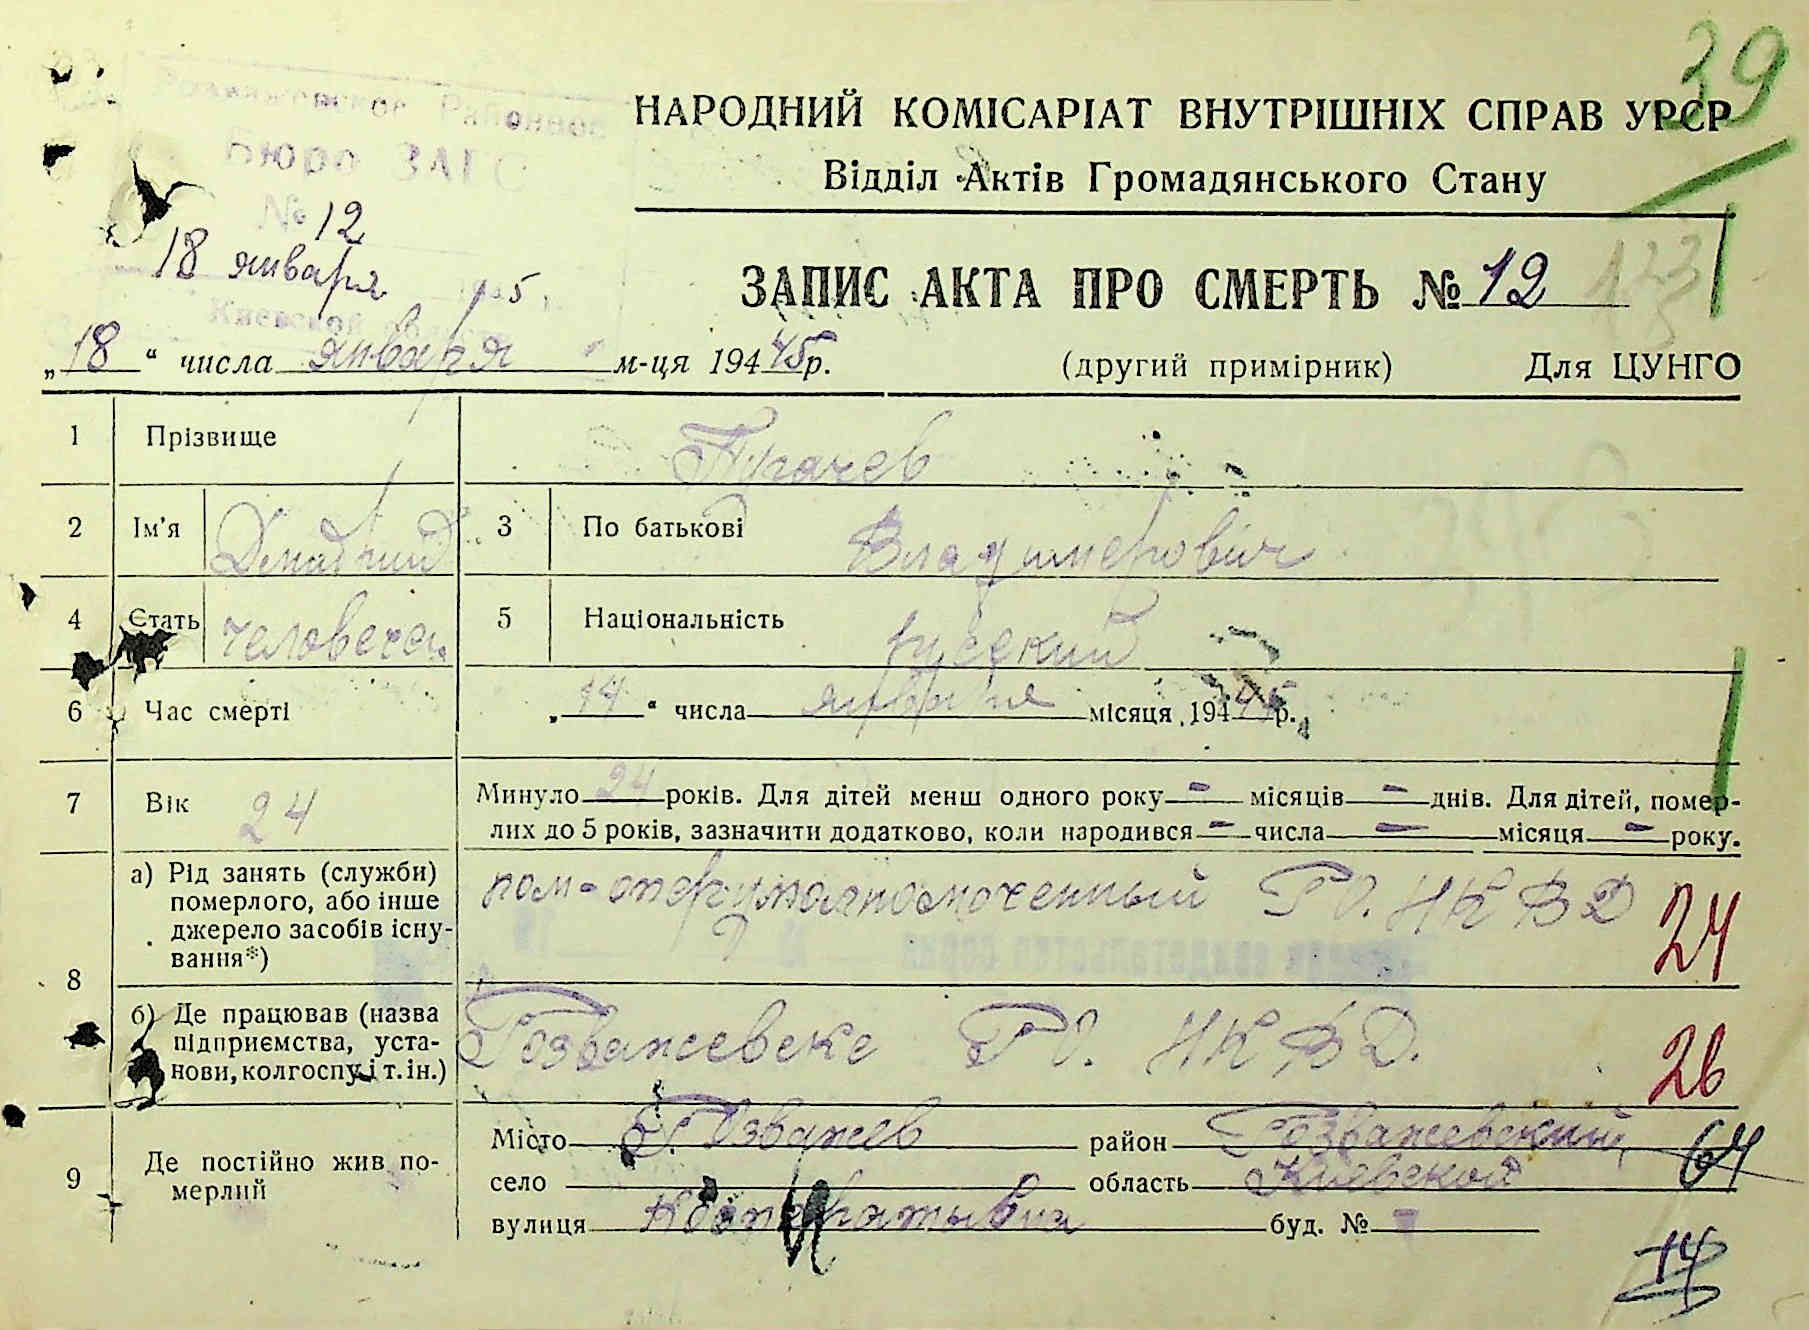 39
Розважевское Районное
Бюро ЗАГС
№ 12
18 января
5
Киевской области
НАРОДНИЙ КОМІСАРІАТ ВНУТРІШНІХ СПРАВ УРСР
Відділ Актів Громадянського Стану
ЗАПИС АКТА ПРО СМЕРТЬ № 12
„18“ числа января м-ця 194 45 р. (другий примірник) Для ЦУНГО
1 Прізвище Пугачев
2 Ім’я Дмитрий 3 По батькові Владимерович
4 Стать 5 Національність русский
6 Час смерті „14“ числа января місяця 194 45 р.
7 Вік 24 Минуло 24 років. Для дітей менш одного року – місяців – днів. Для дітей, помер-
лих до 5 років, зазначити додатково, коли народився – числа – місяця – року.
8 а) Рід занять (служби) померлого, або інше джерело засобів існу-вання*) пом-оперуполномоченный РО. НКВД 24
б) Де працював (назва підприємства, уста-нови, колгоспу і т. ін.) Розважевске РО. НКВД. 26
9 Де постійно жив по-мерлий Місто Розважев район Розважевский 64
село область Киевской
вулиця буд. №
14